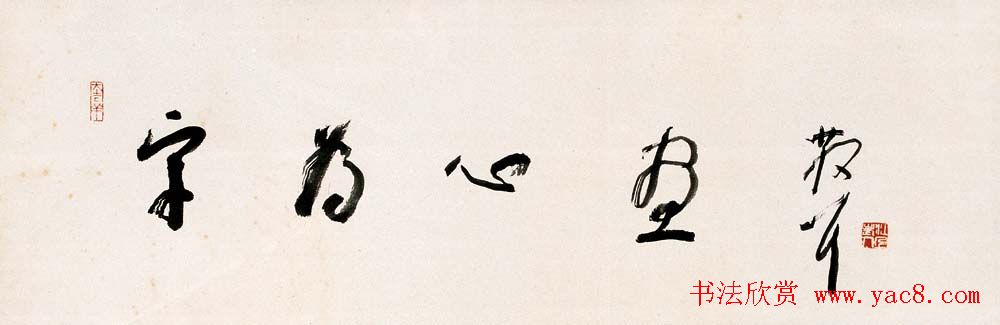 字為心畫
散耳
书法欣赏 www.yac8.com